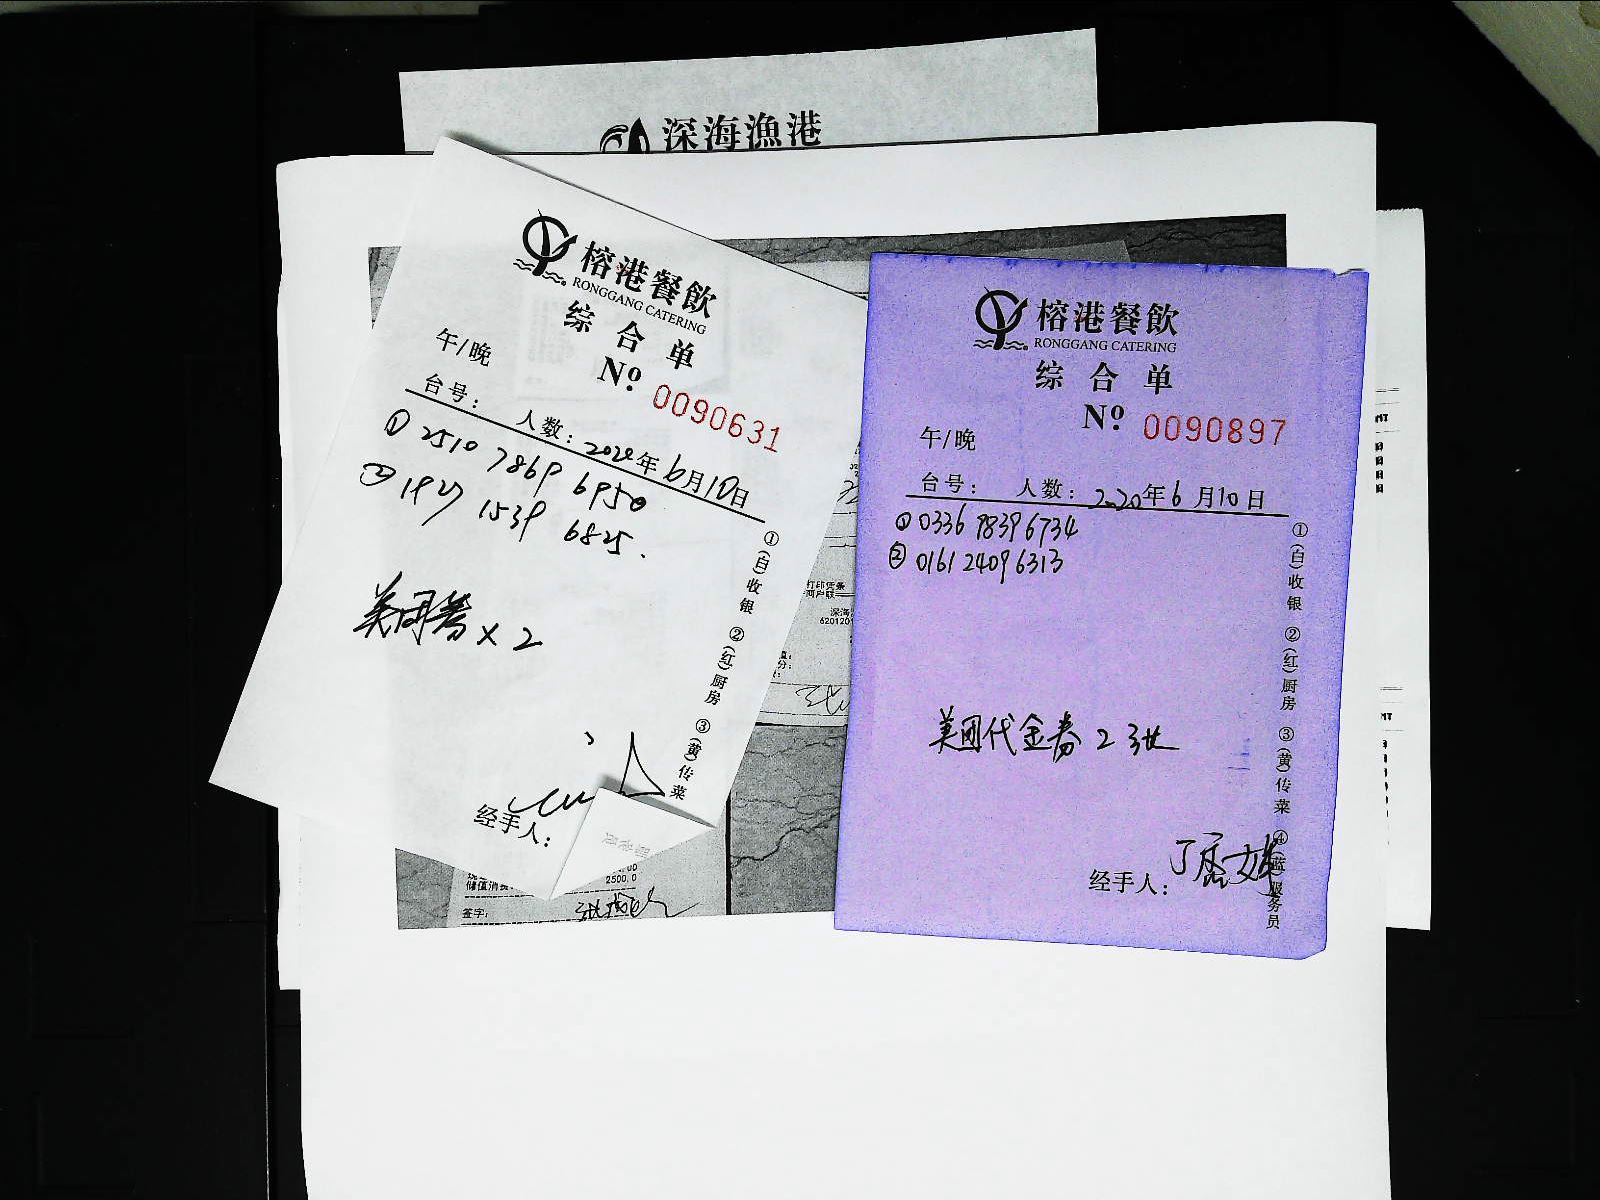 深海漁港
榕港餐飲
RONGGANG CATERING
综合单
午/晚
Nº 0090631
台号: 人数: 2020年6月10日
① 2510 7869 6950
② 1927 1539 6825.
美团券×2
经手人:
①(白)收银 ②(红)厨房 ③(黄)传菜
榕港餐飲
RONGGANG CATERING
综合单
Nº 0090897
午/晚
台号: 人数: 2020年6月10日
① 0336 9839 6734
② 0161 2409 6313
美团代金券2张
经手人:
①(白)收银 ②(红)厨房 ③(黄)传菜 ④(蓝)服务员
打印凭条
商户联
深海
620120
储值消费:
2500.0
签字: